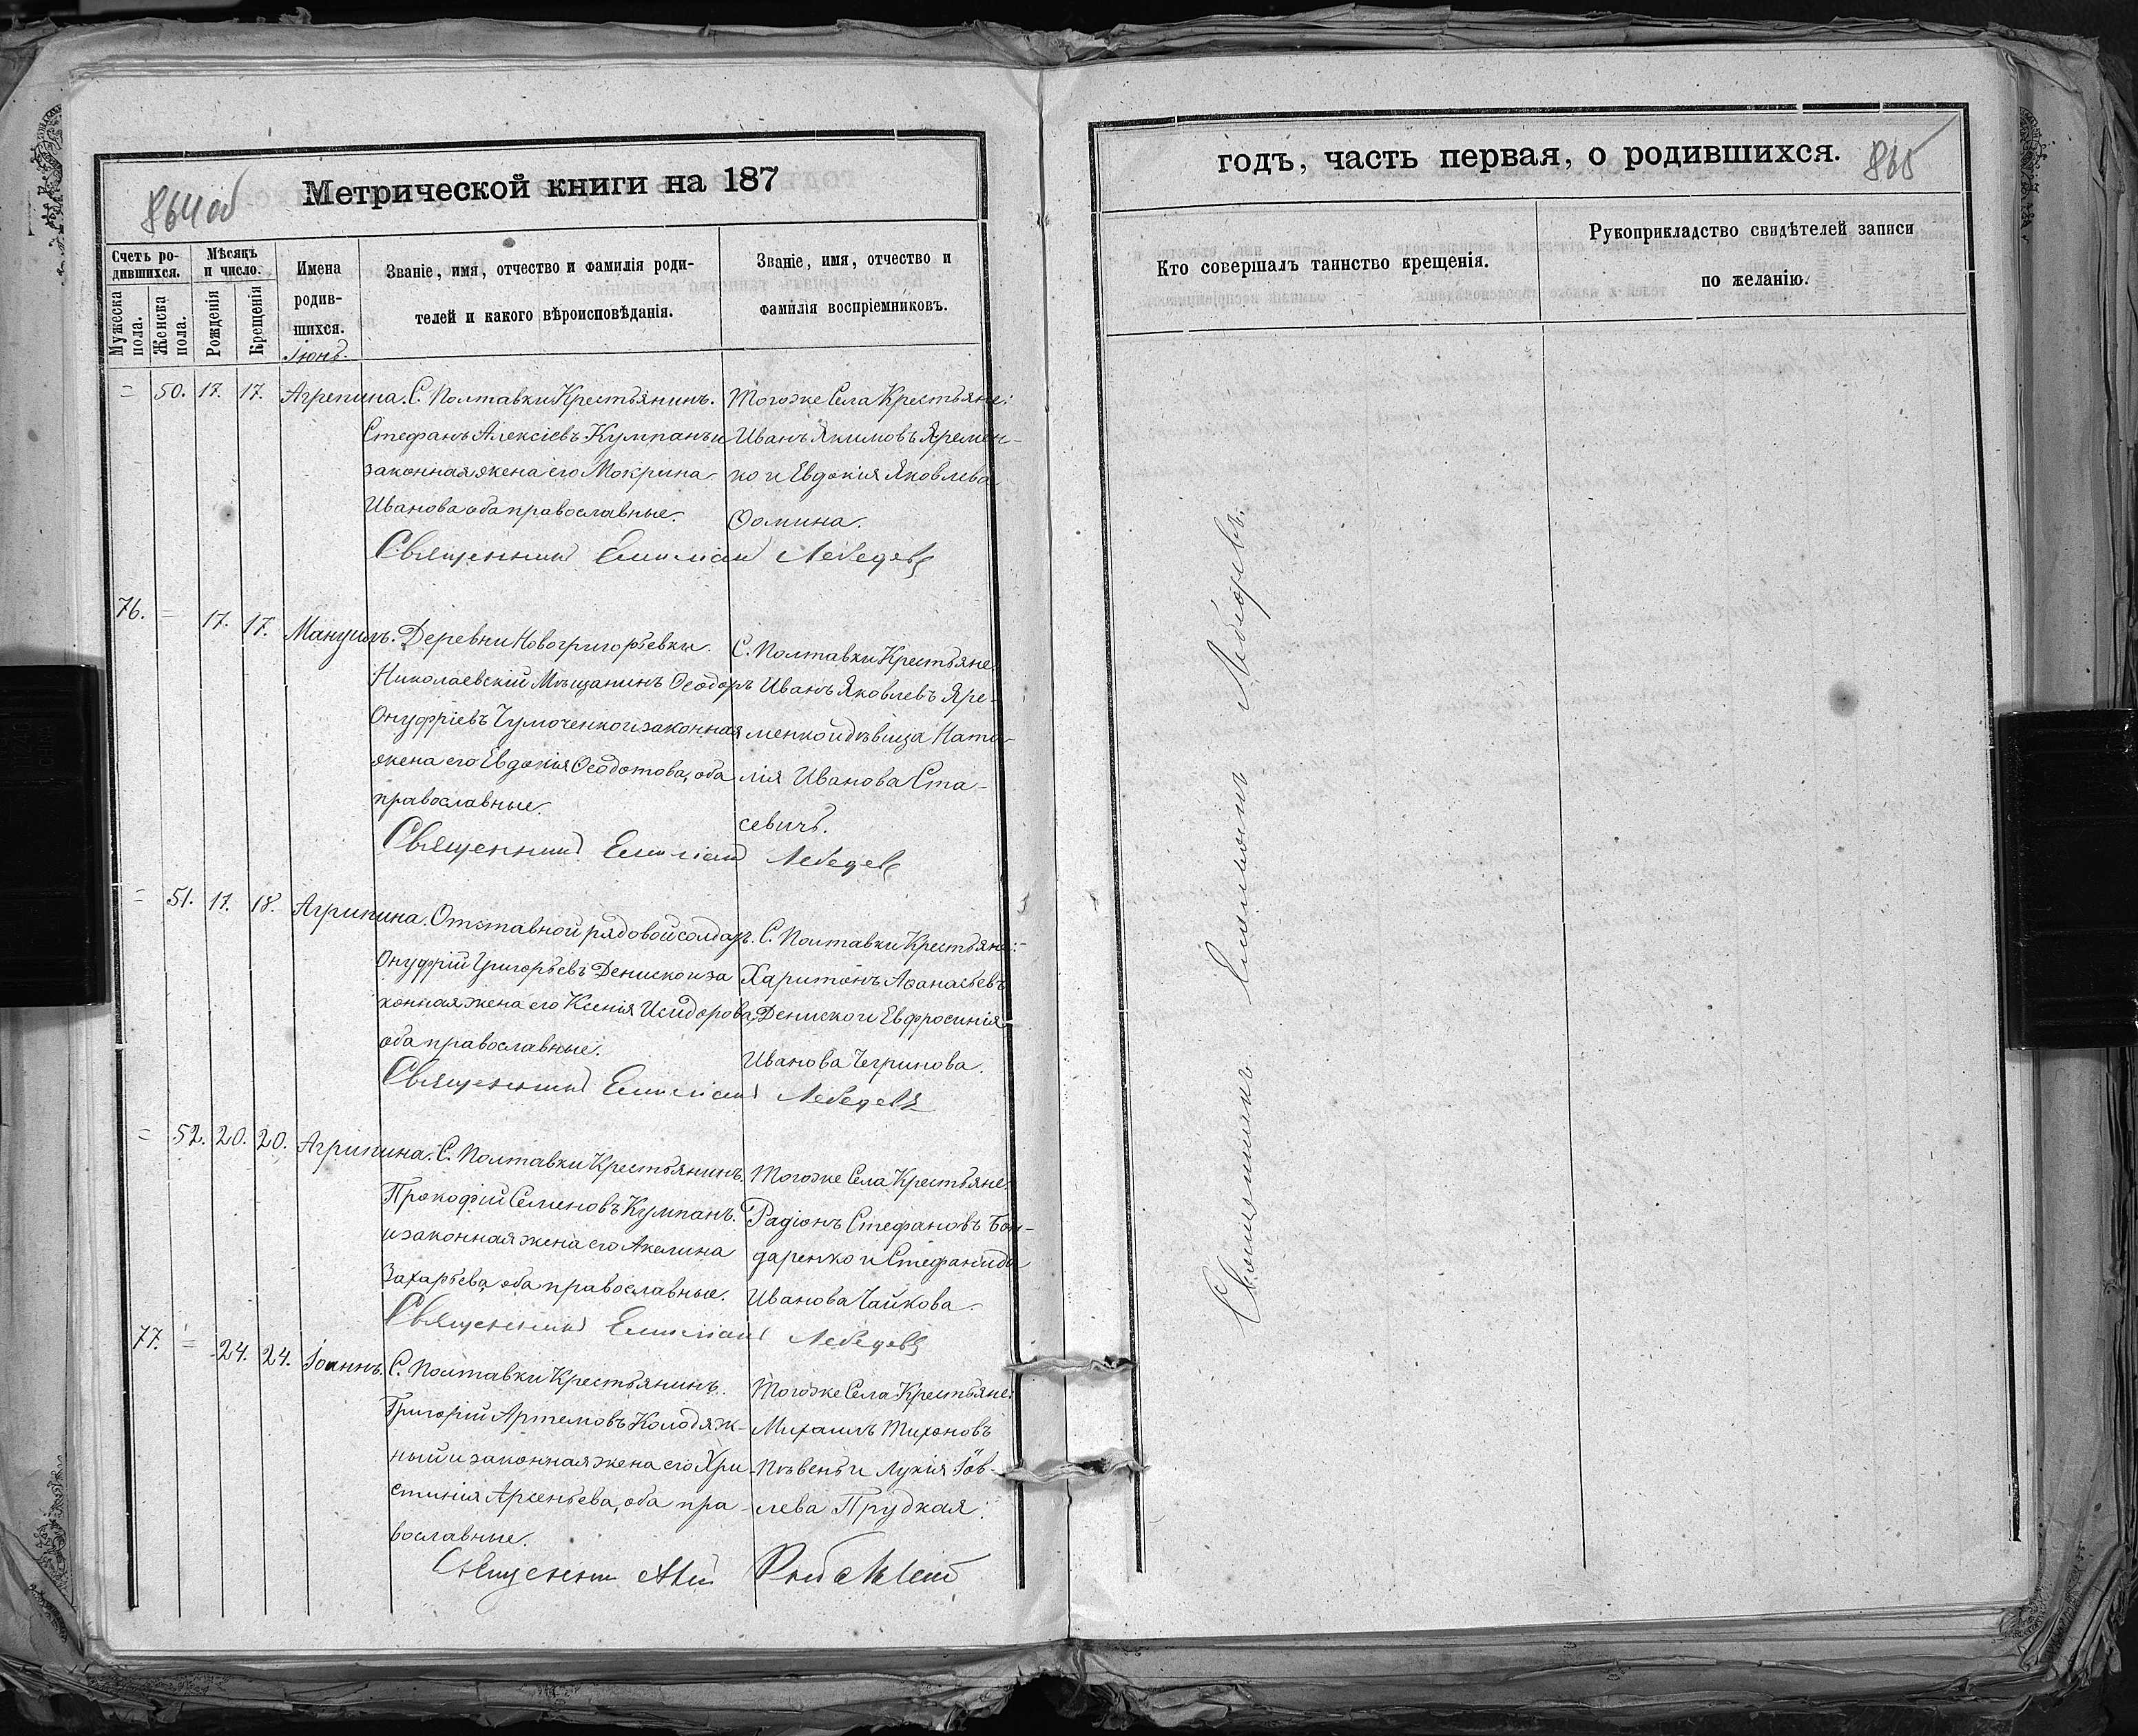 864 об
Метрической книги на 187
Счетъ ро-
дившихся.
Мѣсяцъ
и число.
Мужеска
пола.
Женска
пола.
Рожденія
Крещенія
Имена
родив-
шихся.
Іюнь.
Званіе, имя, отчество и фамилія роди-
телей и какого вѣроисповѣданія.
Званіе, имя, отчество и
фамилія воспріемниковъ.
= 50. 17. 17. Агрепина.
С. Полтавки Крестьянинъ.
Стефанъ Алексіевъ Кумпанъ и
законная жена его Мокрина
Иванова оба православные.
Тогоже Села Крестьяне:
Иванъ Якимовъ Яремен-
ко и Евдокія Яковлева
Ѳомина.
Священникъ Емиліанъ Лебедевъ
76. = 17. 17. Мануилъ.
Деревни Новогригорьевки
Николаевскій Мѣщанинъ Ѳеодоръ
Онуфріевъ Чумоченко и законная
жена его Евдокія Ѳеодотова, оба
православные.
С. Полтавки Крестьяне
Иванъ Яковлевъ Яре-
менко и дѣвица Ната-
лія Иванова Ста-
севичъ.
Священникъ Емиліанъ Лебедевъ
= 51. 17. 18. Агрипина.
Отставной рядовой солдатъ.
Онуфрій Григорьевъ Дениско и за
конная жена его Ксенія Исидорова,
оба православные.
С. Полтавки Крестьяне:
Харитонъ Аѳанасьевъ
Дениско и Евфросинія
Иванова Чегринова.
Священникъ Емиліанъ Лебедевъ
= 52. 20. 20. Агрипина.
С. Полтавки Крестьянинъ.
Прокофій Семеновъ Кумпанъ.
и законная жена его Акелина
Захарьева, оба православные.
Тогоже Села Крестьяне:
Радіонъ Стефановъ Бон-
даренко и Стефанида
Иванова Чайкова.
Священникъ Емиліанъ Лебедевъ
77. = 24. 24. Іоаннъ.
С. Полтавки Крестьянинъ.
Григорій Артемовъ Колодяж-
ный и законная жена его Хри-
стинія Арсеньева, оба пра-
вославные.
Тогоже Села Крестьяне:
Михаилъ Тихоновъ
Пѣвень и Лукія Іов-
лева Прудкая.
Священникъ
годъ, часть первая, о родившихся.
865
Кто совершалъ таинство крещенія.
Рукоприкладство свидѣтелей записи
по желанію.
Священникъ Емиліанъ Лебедевъ.